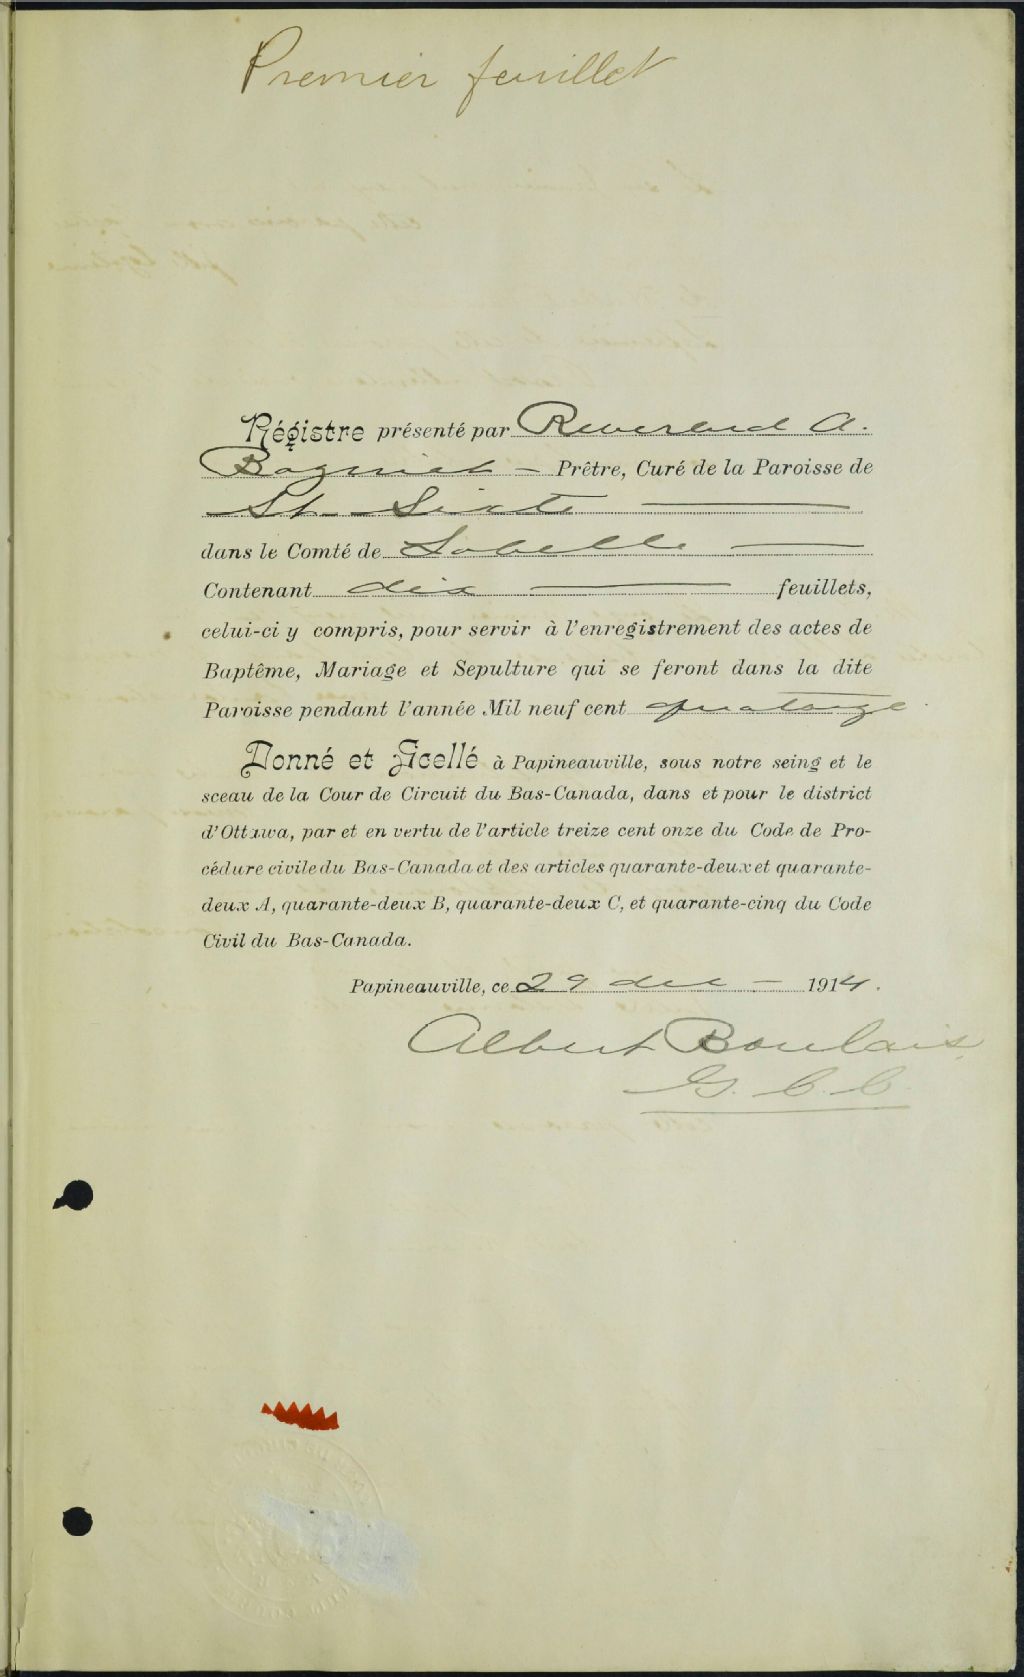 Premier feuillet
Régistre présenté par Reverend A.
Prêtre, Curé de la Paroisse de
St. Sixte
dans le Comté de Labelle
Contenant dix feuillets,
celui-ci y compris, pour servir à l'enregistrement des actes de
Baptême, Mariage et Sepulture qui se feront dans la dite
Paroisse pendant l'année Mil neuf cent quatorze.
Donné et Scellé à Papineauville, sous notre seing et le
sceau de la Cour de Circuit du Bas-Canada, dans et pour le district
d'Ottawa, par et en vertu de l'article treize cent onze du Code de Pro-
cédure civile du Bas-Canada et des articles quarante-deux et quarante-
deux A, quarante-deux B, quarante-deux C, et quarante-cinq du Code
Civil du Bas-Canada.
Papineauville, ce 29 dec 1914.
Albert Boulais
G. C. C.